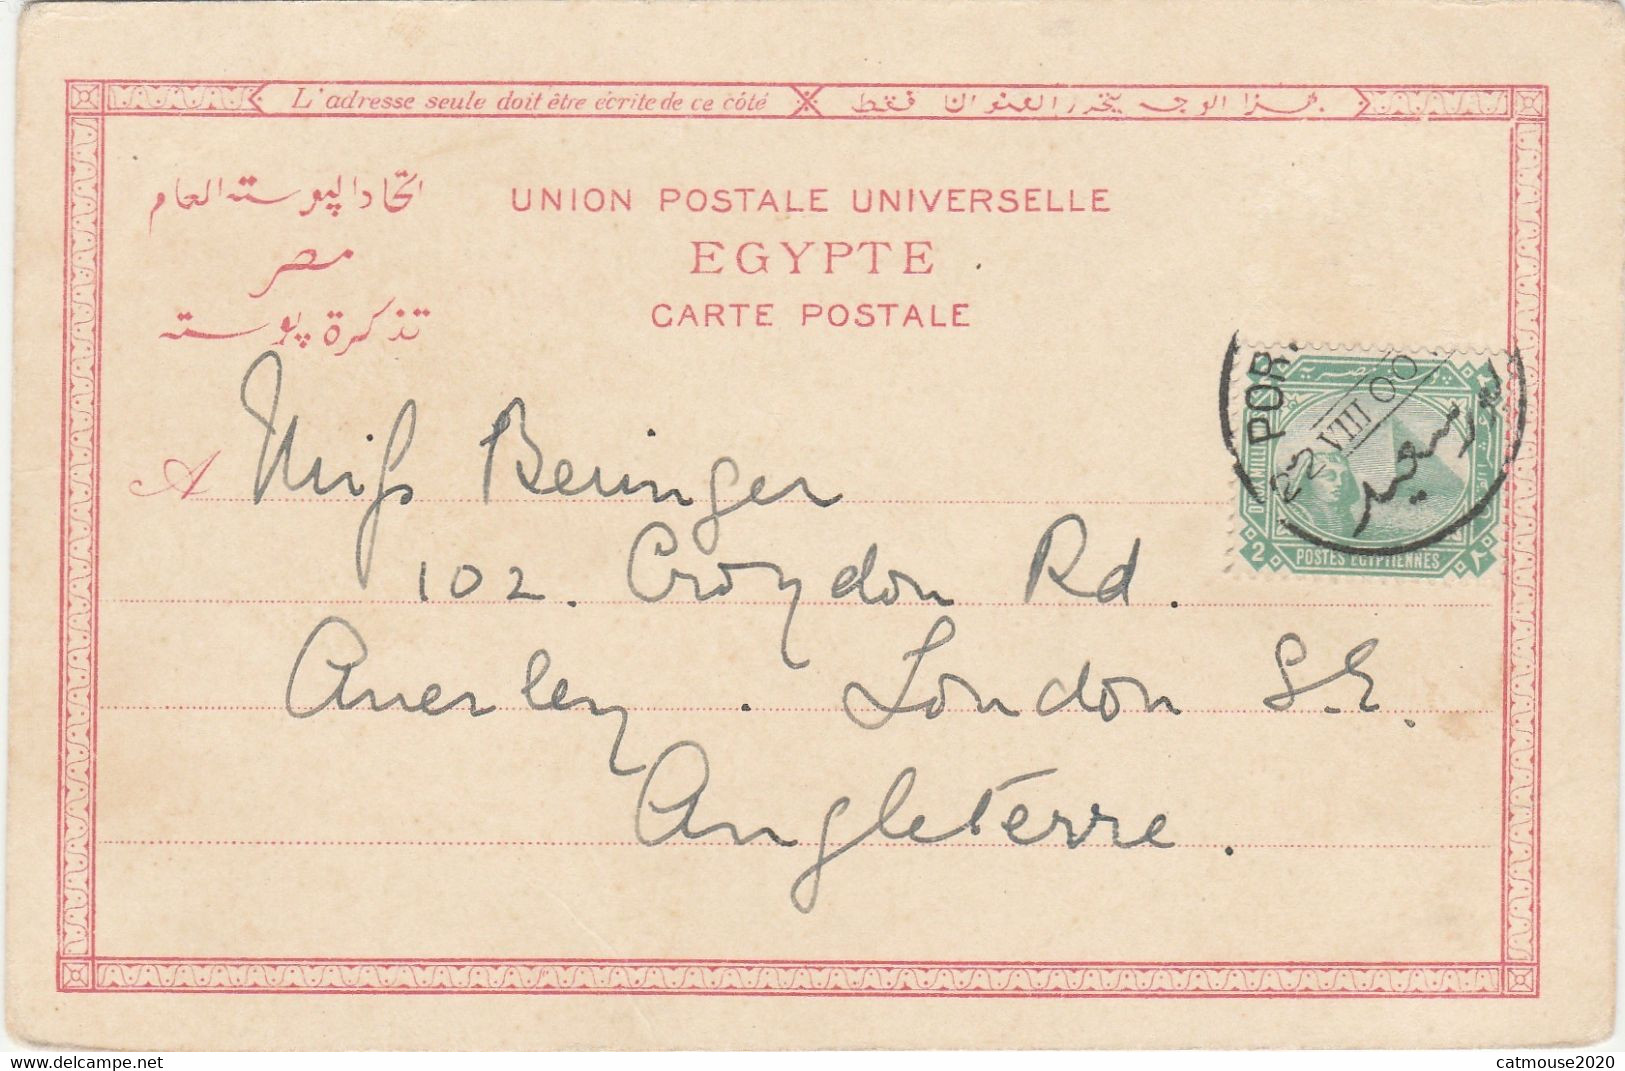 L'adresse seule doit être écrite de ce côté
هذا الوجه يحرر العنوان فقط
اتحاد البوسته العام
مصر
تذكرة بوسته
UNION POSTALE UNIVERSELLE
EGYPTE
CARTE POSTALE
POR
22 VIII 00
بور سعيد
2
POSTES EGYPTIENNES
٢
A Miss Beringer
102. Croydon Rd.
Anerley. London S.E.
Angleterre.
delcampe.net
catmouse2020